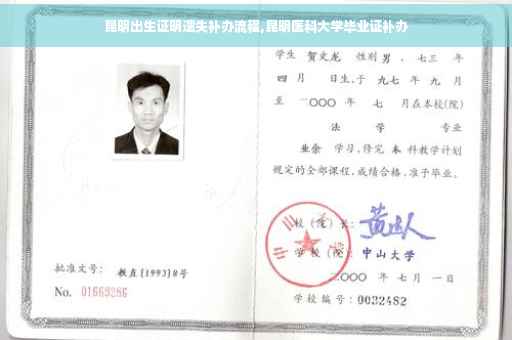 昆明出生证明遗失补办流程,昆明医科大学毕业证补办
学生 贺文龙 性别 男 、七三 年
四 月 日生,于 九七 年 九 月
至 二〇〇〇 年 七 月在本校(院)
法 学 专业
业余 学习,修完 本 科教学计划
规定的全部课程,成绩合格,准予毕业。
校(院)长:
学校(院): 中山大学
二〇〇〇 年 七 月 一 日
批准文号: 教直[1993]8号
No. 01669286
学校编号: 0032482